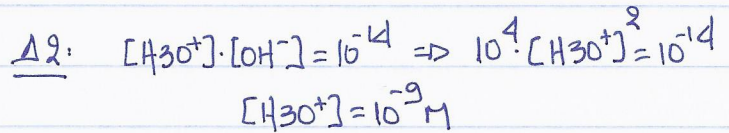 Δ2: [H3O⁺]·[OH⁻]=10⁻¹⁴ => 10⁴·[H3O⁺]²=10⁻¹⁴
[H3O⁺]=10⁻⁹M